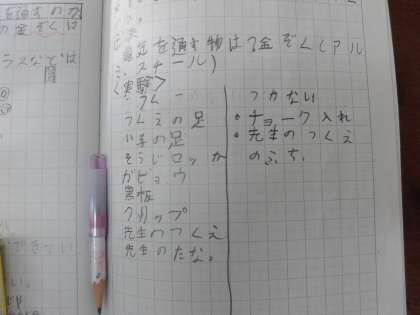 を通すのは
の金ぞくは
ラスなどは
気を通す物は?金ぞく(アル
スチール)
<実験>
つくえの足
いすの足
そうじロッカ
ガビョウ
黒板
クリップ
先生のつくえ
先生のたな。
つかない
・チョーク入れ
・先生のつくえ
のふち。